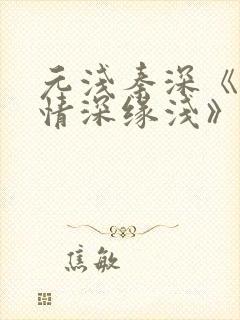 元浅秦深《
情深缘浅》
焦敏